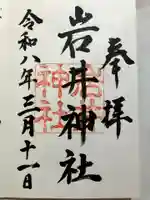 奉拝
岩井神社
令和八年三月十一日